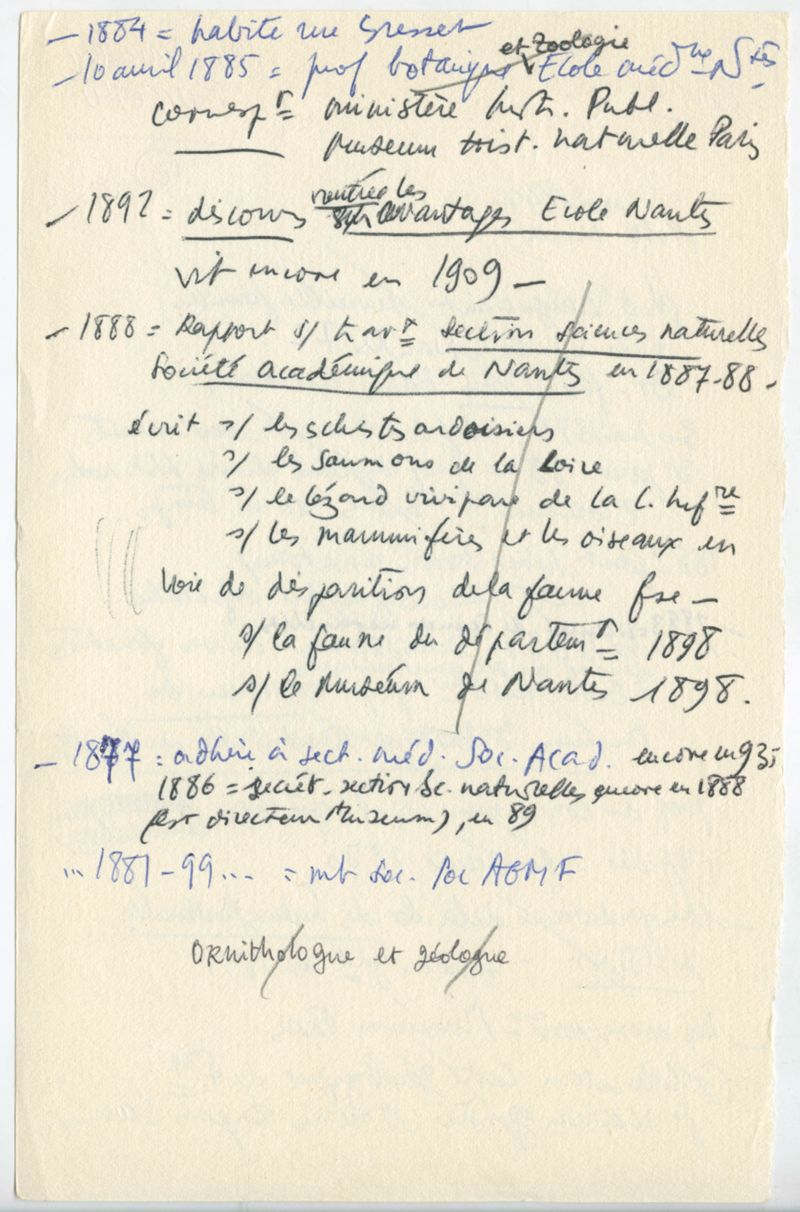 – 1884 = habite rue Gresset
et Zoologie
– 10 avril 1885 = prof botanique Ecole méd ne Ntes
corresp r ministère Instr. Publ.
Museum Hist. naturelle Paris
– 1892 = discours rentrée les
s/ avantages Ecole Nantes
vit encore en 1909 –
– 1888 = Rapport s/ trav x section sciences naturelles
Société académique de Nantes en 1887-88 -
écrit s/ les schistes ardoisiers
s/ les saumons de la Loire
s/ le lézard vivipare de la L. Inf re
s/ les mammifères et les oiseaux en
voie de disparition de la faune fse –
s/ la faune du départem t 1898
s/ le muséum de Nantes 1898.
– 1877 : adhère à sect. méd. Soc. Acad. encore en 93 ;
1886 = secrét. section Sc. naturelles, encore en 1888
(est directeur Muzeum), en 89
... 1881-99 ... = mb Soc. Loc AGMF
ornithologue et géologue